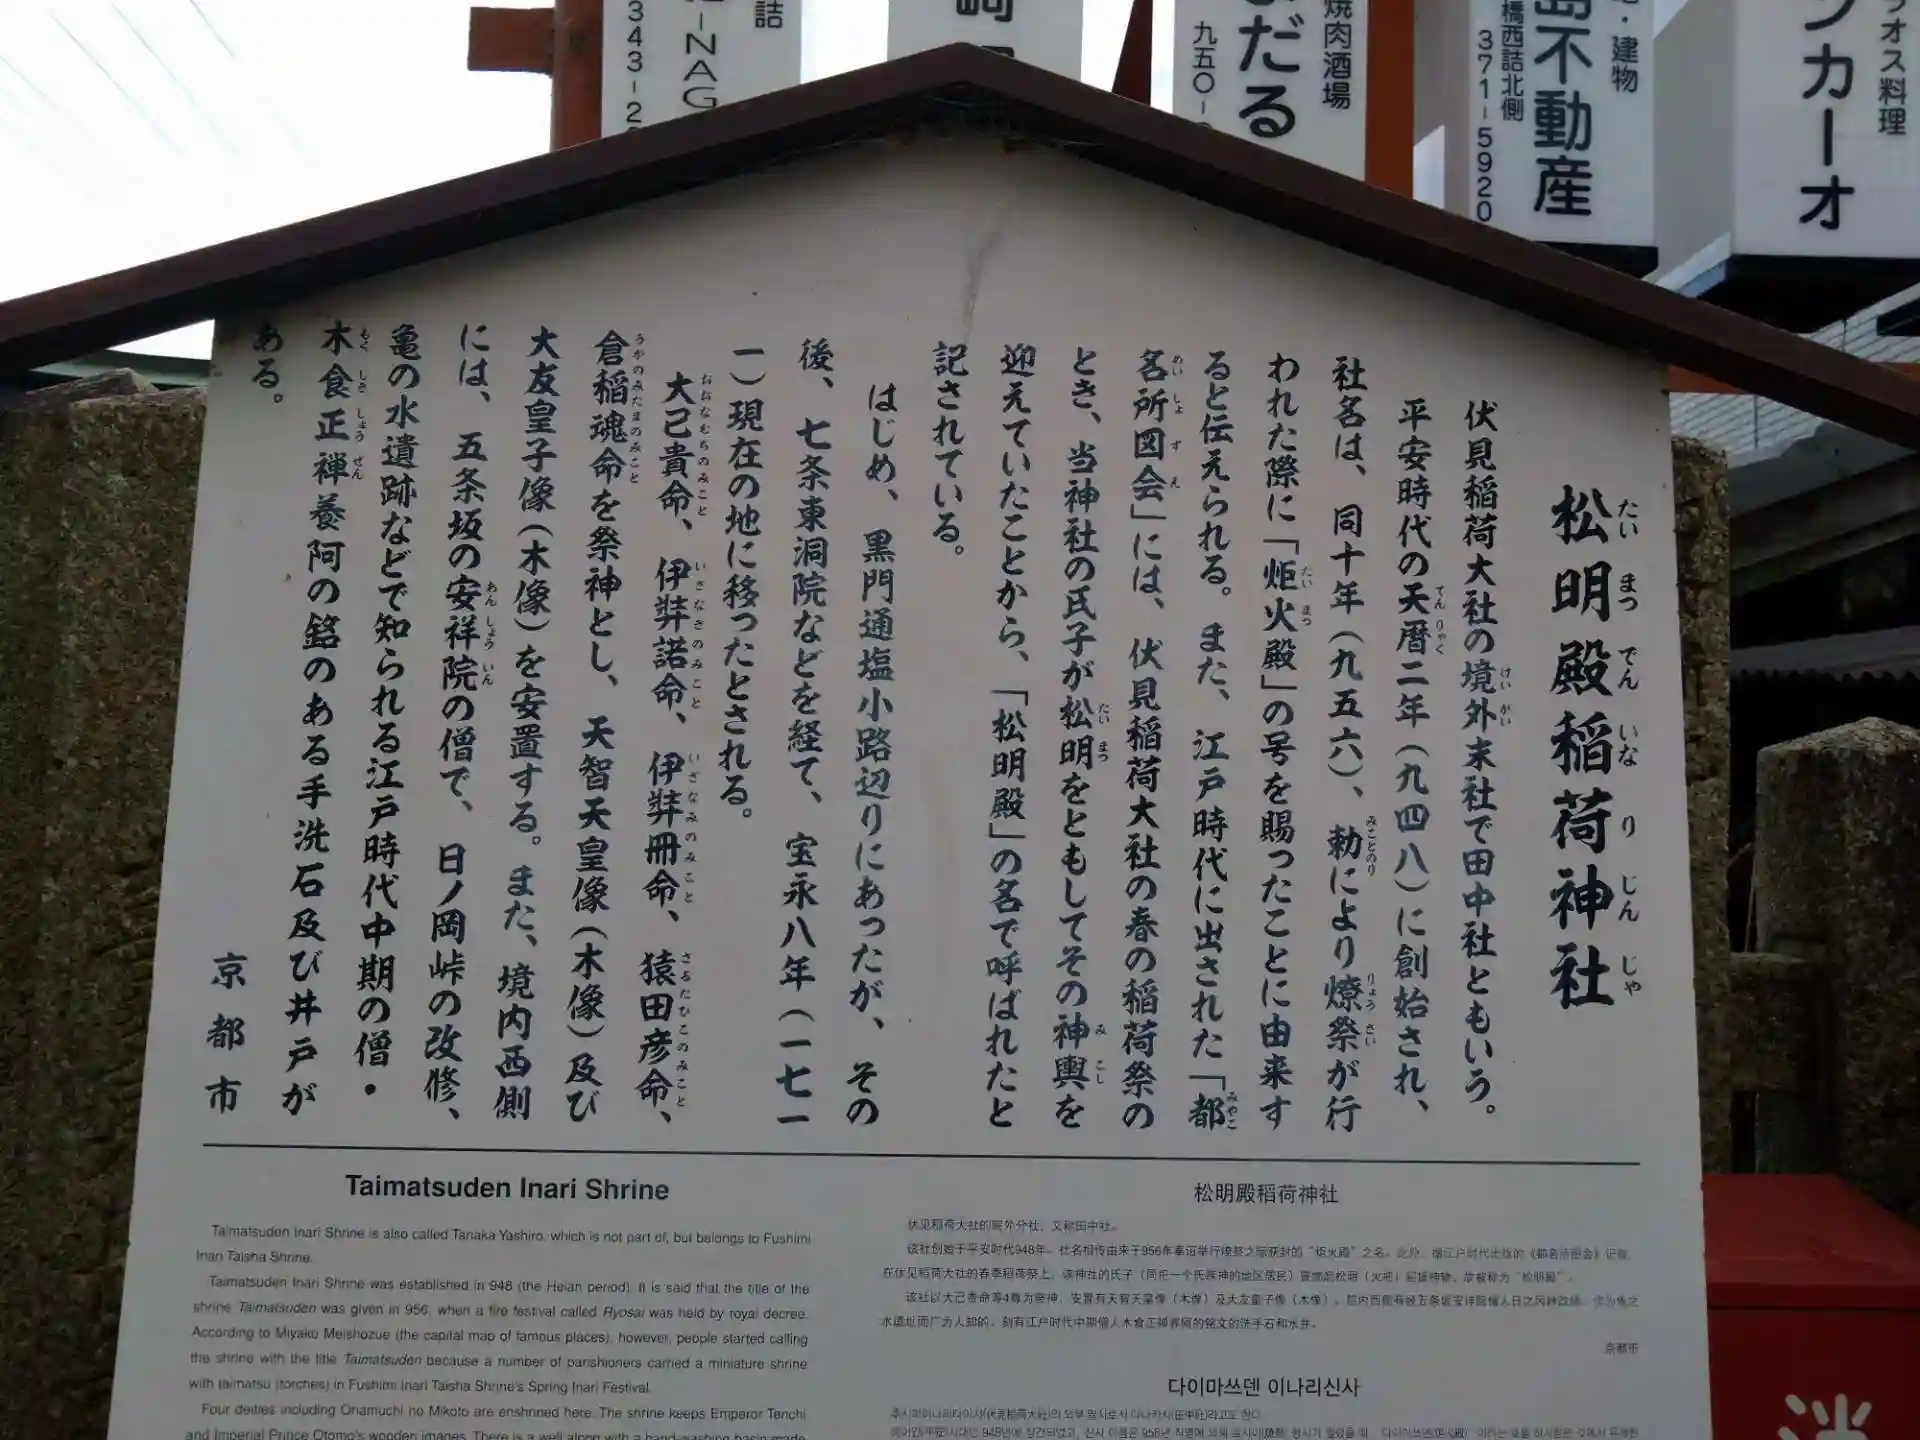 松明殿稲荷神社
たいまつでんいなりじんじゃ
伏見稲荷大社の境外末社で田中社ともいう。
平安時代の天暦二年（九四八）に創始され、
社名は、同十年（九五六）、勅により燎祭が行
われた際に「炬火殿」の号を賜ったことに由来す
ると伝えられる。また、江戸時代に出された「都
名所図会」には、伏見稲荷大社の春の稲荷祭の
とき、当神社の氏子が松明をともしてその神輿を
迎えていたことから、「松明殿」の名で呼ばれたと
記されている。
はじめ、黒門通塩小路辺りにあったが、その
後、七条東洞院などを経て、宝永八年（一七一
一）現在の地に移ったとされる。
大己貴命、伊弉諾命、伊弉冊命、猿田彦命、
倉稲魂命を祭神とし、天智天皇像（木像）及び
大友皇子像（木像）を安置する。また、境内西側
には、五条坂の安祥院の僧で、日ノ岡峠の改修、
亀の水遺跡などで知られる江戸時代中期の僧・
木食正禅養阿の銘のある手洗石及び井戸が
ある。
京都市
Taimatsuden Inari Shrine
Taimatsuden Inari Shrine is also called Tanaka Yashiro, which is not part of, but belongs to Fushimi
Inari Taisha Shrine.
Taimatsuden Inari Shrine was established in 948 (the Heian period). It is said that the title of the
shrine Taimatsuden was given in 956, when a fire festival called Ryosai was held by royal decree.
According to Miyako Meishozue (the capital map of famous places), however, people started calling
the shrine with the title Taimatsuden because a number of parishioners carried a miniature shrine
with taimatsu (torches) in Fushimi Inari Taisha Shrine's Spring Inari Festival.
Four deities including Onamuchi no Mikoto are enshrined here. The shrine keeps Emperor Tenchi
and Imperial Prince Otomo's wooden images. There is a well along with a hand-washing basin made
松明殿稲荷神社
伏见稻荷大社的院外分社，又称田中社。
京都市
다이마쓰덴 이나리신사
詰
343-2
-NAG
崎
焼肉酒場
だる
九五〇-
・建物
橋西詰北側
371-5920
島不動産
ラオス料理
カーオ